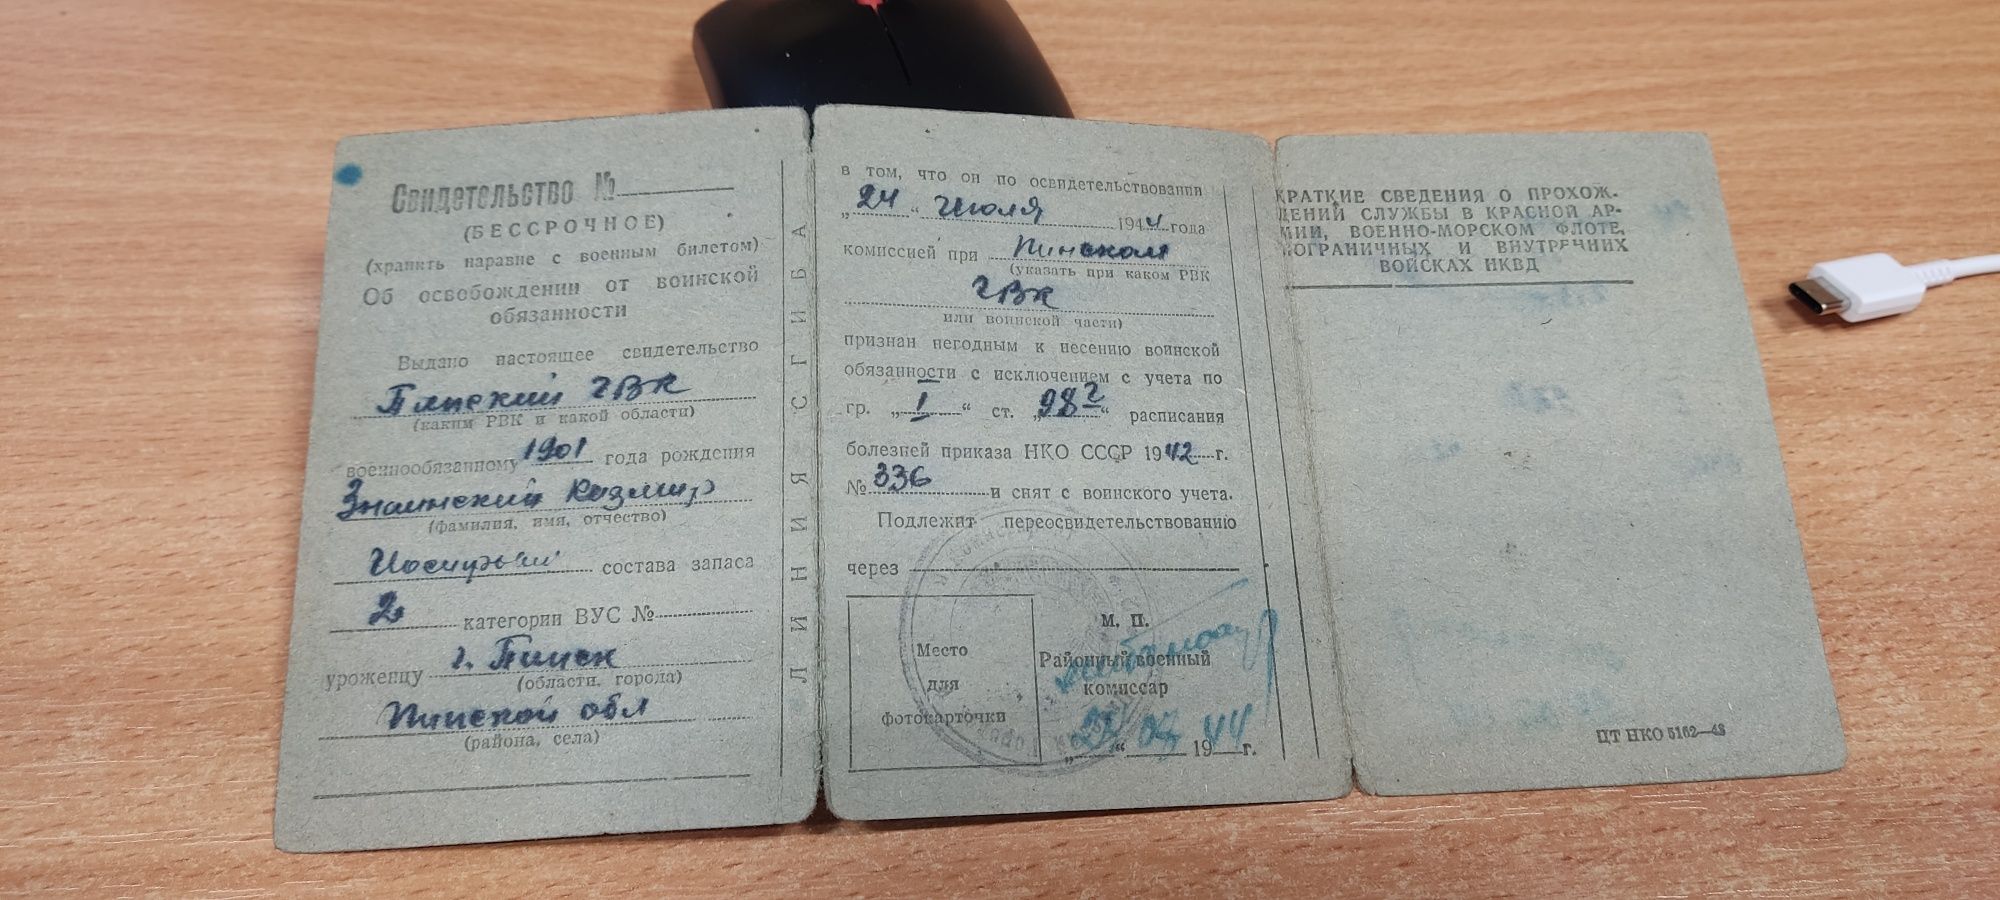 Свидетельство №
(БЕССРОЧНОЕ)
(хранить наравне с военным билетом)
Об освобождении от воинской
обязанности
Выдано настоящее свидетельство
Пинский ГВК
(каким РВК и какой области)
военнообязанному 1901 года рождения
Знаинский Казмир
(фамилия, имя, отчество)
состава запаса
2 категории ВУС №
уроженцу г. Пинск
(области, города)
Пинской обл
(района, села)
ЛИНИЯ СГИБА
в том, что он по освидетельствовании
„24“ Июля 1944 года
комиссией при Пинском
(указать при каком РВК
ГВК
или воинской части)
признан негодным к несению воинской
обязанности с исключением с учета по
гр. „I“ ст. „98 2“ расписания
болезней приказа НКО СССР 1942 г.
№ 336 и снят с воинского учета.
Подлежит переосвидетельствованию
через
Место
для
фотокарточки
М. П.
Районный военный
комиссар
07 1944 г.
КРАТКИЕ СВЕДЕНИЯ О ПРОХОЖ-
ДЕНИИ СЛУЖБЫ В КРАСНОЙ АР-
МИИ, ВОЕННО-МОРСКОМ ФЛОТЕ,
ПОГРАНИЧНЫХ И ВНУТРЕННИХ
ВОЙСКАХ НКВД
ЦТ НКО 5162—43